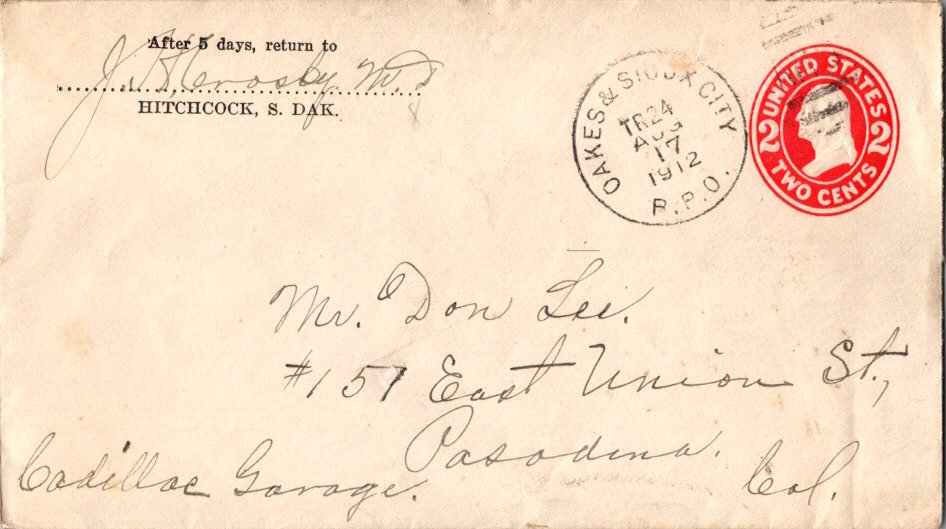 After 5 days, return to
J. H. Crosby M.D
HITCHCOCK, S. DAK.
OAKES & SIOUX CITY
TR24
AUG
17
1912
R.P.O.
UNITED STATES
2 2
TWO CENTS
Mr. Don Lee.
#151 East Union St.,
Pasodina.
Cadillac Garage. Cal.